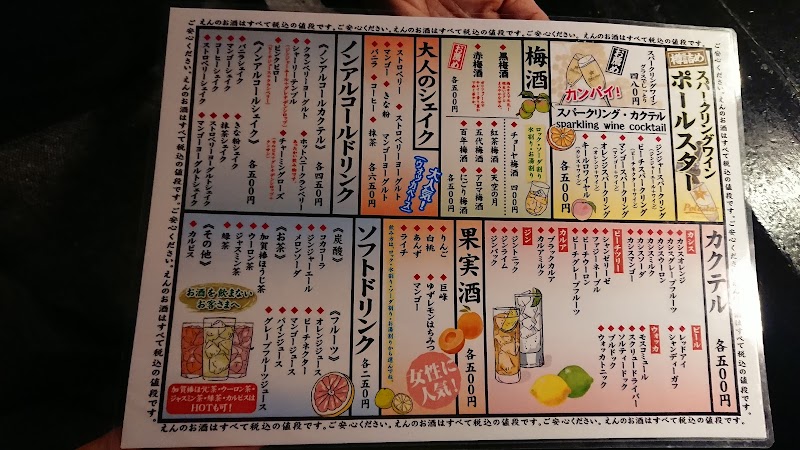 ご安心ください。えんのお酒はすべて税込の値段です。
スパークリングワイン
ポールスター
スパークリングワイン
グラス
四八〇円
カンパイ!
スパークリング・カクテル
sparkling wine cocktail
ジンジャースパークリング
ピーチスパークリング
マンゴースパークリング
オレンジスパークリング
キールロワイヤル
各五〇〇円
梅酒
ロック・ソーダ割り
水割り・お湯割り
黒梅酒
赤梅酒
各五〇〇円
チョーヤ梅酒
四〇〇円
紅茶梅酒
天空の月
五代梅酒
アロマ梅酒
百年梅酒
にごり梅酒
各五〇〇円
大人のシェイク
大人気!
ストロベリー
ストロベリーヨーグルト
マンゴー
きな粉
マンゴーヨーグルト
バニラ
コーヒー
抹茶
各六五〇円
ノンアルコールドリンク
《ノンアルコールカクテル》
各四五〇円
クランベリーヨーグルト
ホットハニークランベリー
シャーリーテンプル
ピンクピロー
チャーミングローズ
《ノンアルコールシェイク》
各五〇〇円
バニラシェイク
きな粉シェイク
マンゴーシェイク
抹茶シェイク
コーヒーシェイク
ストロベリーヨーグルトシェイク
ストロベリーシェイク
マンゴーヨーグルトシェイク
カクテル
各五〇〇円
カシス
カシスオレンジ
カシスグレープフルーツ
カシスウーロン
カシスミルク
カシスソーダ
カシスマンゴー
ピーチツリー
ピーチウーロン
ピーチグレープフルーツ
ファジーネーブル
シャンゼリーゼ
カルア
ブラックカルア
カルアミルク
ジン
ジントニック
ジンライム
ジンバック
ビール
レッドアイ
シャンディーガフ
ウォッカ
モスコミュール
スクリュードライバー
ソルティードック
ブルドック
ウォッカトニック
果実酒
各五〇〇円
りんご
巨峰
白桃
ゆずレモンはちみつ
あんず
マンゴー
ライチ
女性に
人気!
ソフトドリンク
各二五〇円
《炭酸》
コカコーラ
ジンジャーエール
メロンソーダ
《フルーツ》
オレンジジュース
ピーチネクター
マンゴージュース
パインジュース
グレープフルーツジュース
《お茶》
加賀棒ほうじ茶
ウーロン茶
ジャスミン茶
緑茶
《その他》
カルピス
お酒を飲まない
お客さまへ
加賀棒ほうじ茶・ウーロン茶・
ジャスミン茶・緑茶・カルピスは
HOTも可!